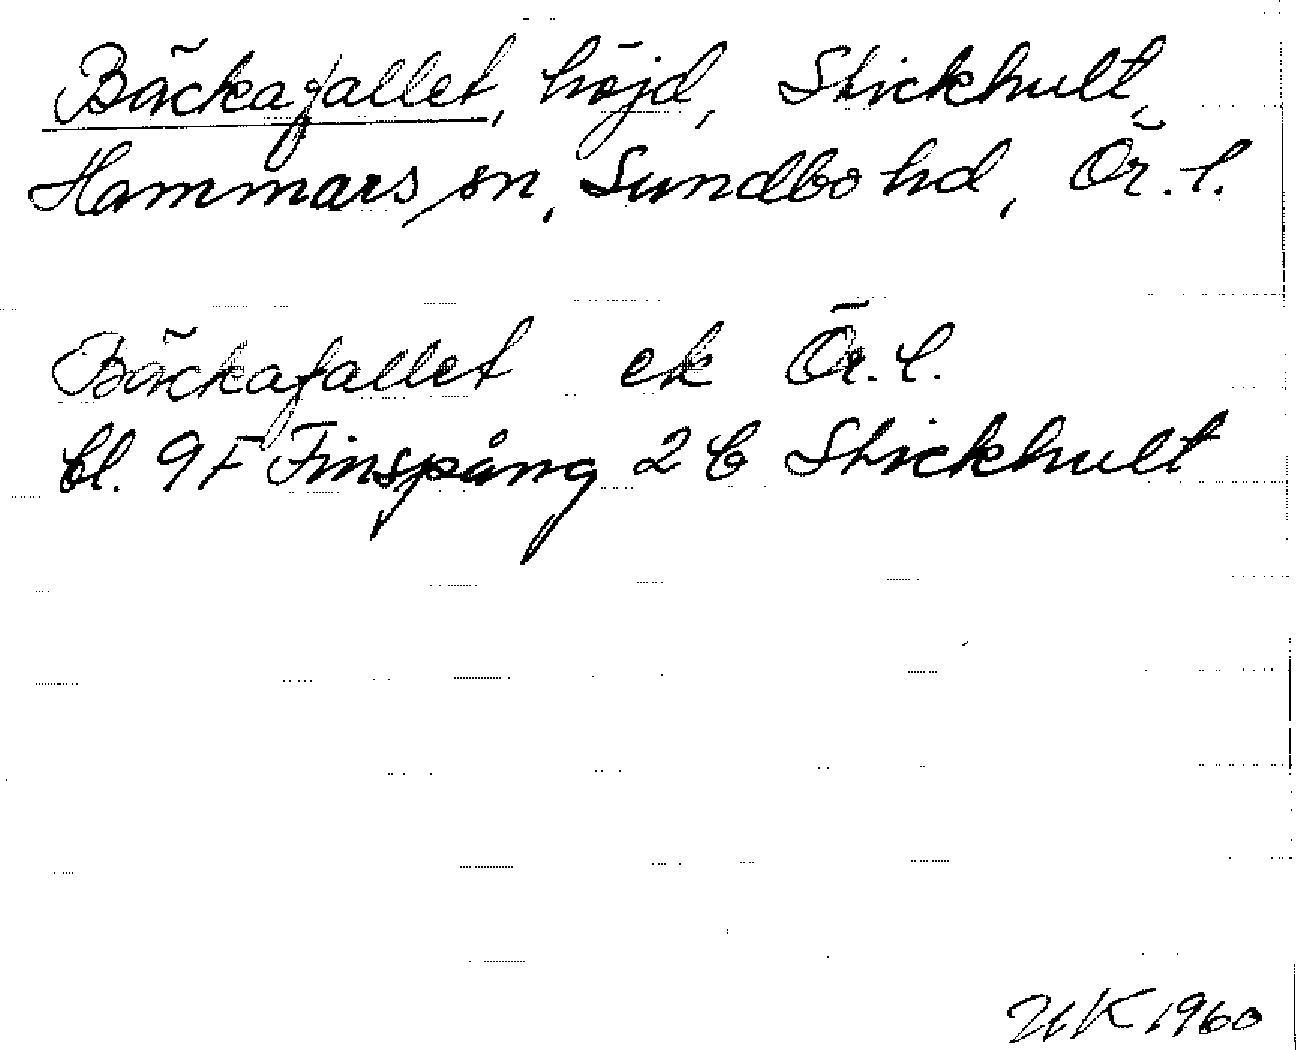 Bäckafallet, höjd, Stickhult,
Hammars sn, Sundbo hd, Ör. l.
Bäckafallet ek Ör. l.
bl. 9F Finspång 2 b Stickhult
UK 1960